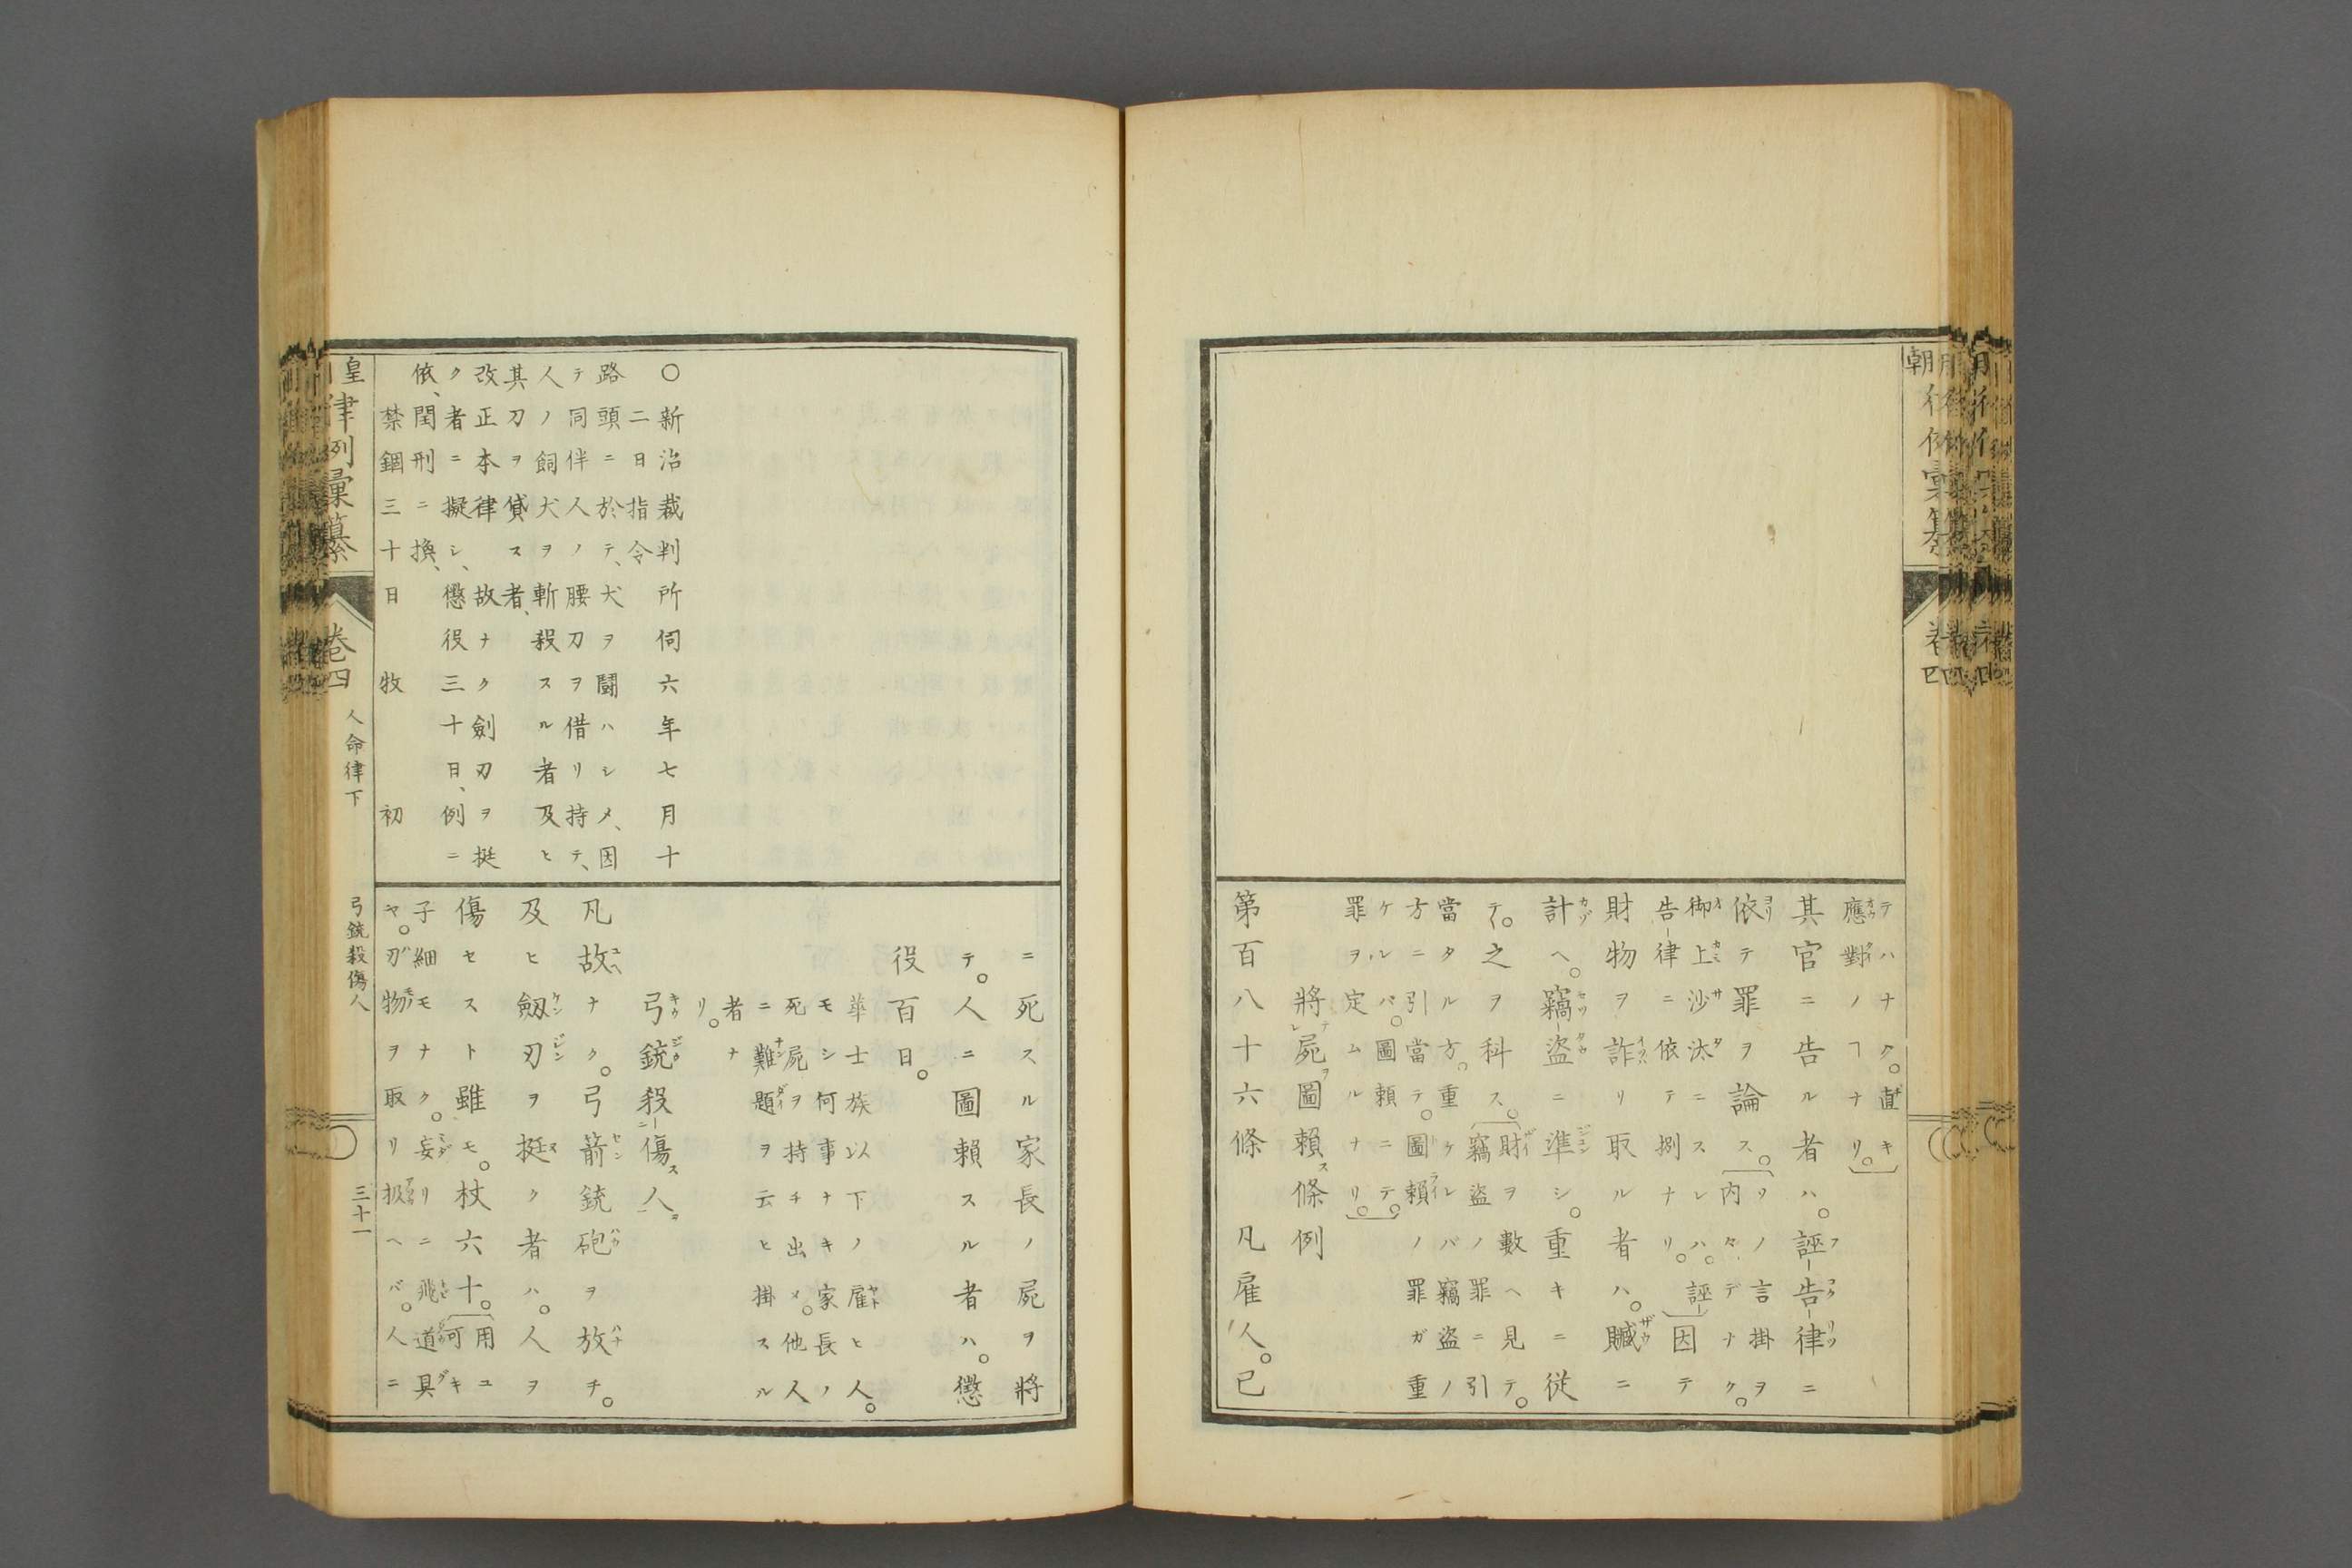 テハナク。直キ
應對ノヿナリ。
其官ニ告ル者ハ。誣告律ニ
依テ罪ヲ論ス。
リノ言掛ヲ
内々デナク。
御上沙汰ニスレハ。誣
告律ニ依テ捌ナリ。
因テ
財物ヲ詐リ取ル者ハ。贓ニ
計ヘ。竊盗ニ準シ。重キニ従
テ。之ヲ科ス。
財ヲ數ヘ見テ。
竊盗ノ罪ニ引
當タル方。重ケレバ竊盗ノ
方ニ引當テ。圖頼ノ罪ガ重
ケルバ。圖頼ニテ。
罪ヲ定ムルナリ。
將レ屍ヲ圖頼ス條例
第百八十六條 凡雇人。已
ニ死スル家長ノ屍ヲ將
テ。人ニ圖頼スル者ハ。懲
役百日。
華士族以下ノ雇ヒ人。
モシ何事ナキ家長ノ
死屍ヲ持チ出メ。他人
ニ難題ヲ云ヒ掛スル
者ナ
リ。
弓銃殺傷ス人ヲ
凡故ナク。弓箭銃砲ヲ放チ。
及ヒ劔刃ヲ挺ク者ハ。人ヲ
傷セスト雖モ。杖六十。
用ユ
可キ
子細モナク。妄リニ飛道具
ヤ。刃物ヲ取リ扱ヘバ。人ニ
○新治裁判所伺六年七月十
二日指令
路頭ニ於テ、犬ヲ鬪ハシメ、因
テ同伴人ノ腰刀ヲ借リ持テ、
人ノ飼犬ヲ斬殺スル者及ヒ
其刀ヲ貸ス者、
改正本律 故ナク劍刃ヲ挺
ク者ニ擬シ、懲役三十日、例ニ
依、閏刑ニ換、
禁錮三十日 牧 初
皇 律例彙纂 卷四 人命律下 弓銃殺傷人 三十一
朝 彙纂 卷四